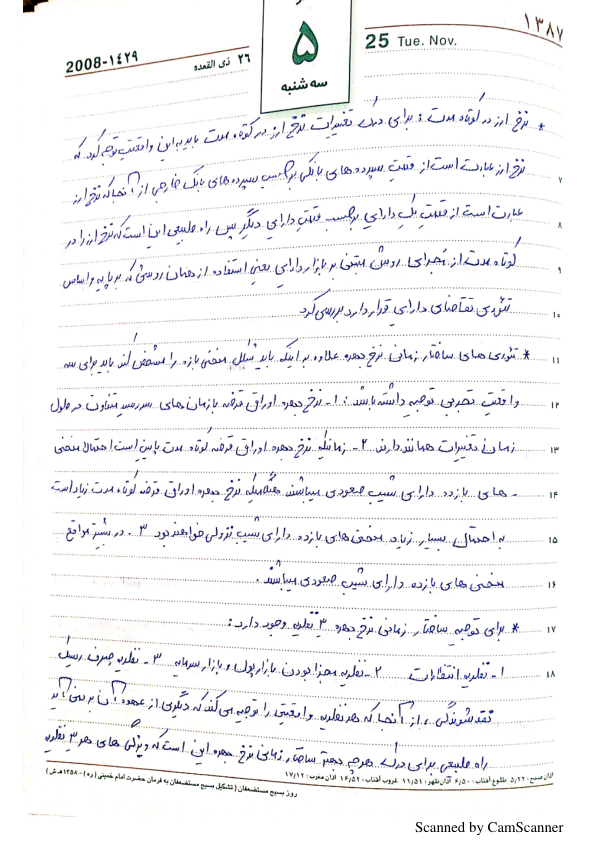 ۱۳۸۷
25 Tue. Nov.
۵
سه شنبه
۲۶ ذی القعده
2008-۱٤۲۹
* نرخ ارز در کوتاه مدت : برای درک تغییرات نرخ ارز در کوتاه مدت باید به این واقعیت توجه کرد که
۷ نرخ ارز عبارت است از قیمت سپرده های بانکی برحسب سپرده های بانک خارجی از آنجا که نرخ ارز
۸ عبارت است از قیمت یک دارایی برحسب قیمت دارایی دیگر پس راه طبیعی این است که نرخ ارز را در
۹ کوتاه مدت از مجرای روش مبتنی بر بازار دارایی یعنی استفاده از همان روشی که بر پایه و اساس
۱۰ تئوری تقاضای دارایی قرار دارد بررسی کرد
۱۱ * تئوری های ساختار زمانی نرخ بهره علاوه بر اینکه باید شکل منحنی بازده را مشخص کند باید برای سه
۱۲ واقعیت تجربی توجیه داشته باشد : ۱- نرخ بهره اوراق قرضه با زمان های سررسید متفاوت در طول
۱۳ زمان تغییرات همانند دارند ۲- زمانیکه نرخ بهره اوراق قرضه کوتاه مدت پایین است احتمالا منحنی
۱۴ - های بازده دارای شیب صعودی میباشند هنگامیکه نرخ بهره اوراق قرضه کوتاه مدت زیاد است
۱۵ به احتمال بسیار زیاد منحنی های بازده دارای شیب نزولی خواهند بود ۳- در بیشتر مواقع
۱۶ منحنی های بازده دارای شیب صعودی میباشند .
۱۷ * برای توجیه ساختار زمانی نرخ بهره ۳ نظریه وجود دارد :
۱۸ ۱- نظریه انتظارات ۲- نظریه مجزا بودن بازار پول و بازار سرمایه ۳- نظریه صرف ریسک
نقدشوندگی ، از آنجا که هر نظریه واقعیتی را توجیه می کند که دیگری از عهده آن بر نمی آید
راه طبیعی برای درک هرچه بهتر ساختار زمانی نرخ بهره این است که ویژگی های هر ۳ نظریه
اذان صبح : ۵/۲۲ طلوع آفتاب : ۶/۵۰ اذان ظهر : ۱۱/۵۱ غروب آفتاب : ۱۶/۵۲ اذان مغرب : ۱۷/۱۲
روز بسیج مستضعفان ( تشکیل بسیج مستضعفان به فرمان حضرت امام خمینی (ره) - ۱۳۵۸ هـ.ش )
Scanned by CamScanner